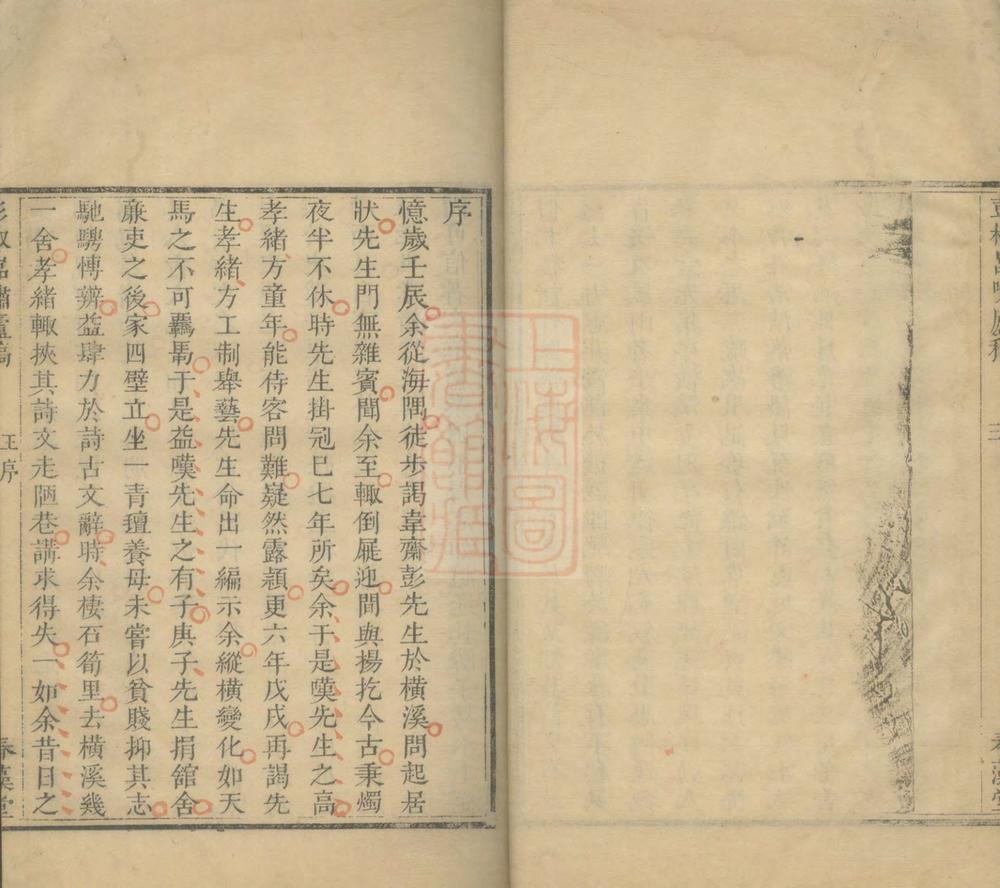 序
憶歲壬辰余從海隅徒步謁韋齋彭先生於橫溪問起居
狀先生門無雜賓聞余至輙倒屣迎間與揚扢今古秉燭
夜半不休時先生掛冠已七年所矣余于是嘆先生之高
孝緒方童年能侍客問難嶷然露頴更六年戊戌再謁先
生孝緒方工制舉藝先生命出一編示余縱橫變化如天
馬之不可羈馽于是益嘆先生之有子庚子先生捐舘舍
亷吏之後家四壁立坐一青氊養母未嘗以貧賤抑其志
馳騁愽辨益肆力於詩古文辭時余棲石筍里去橫溪幾
一舍孝緒輙挾其詩文走陋巷講求得失一如余昔日之
嘯廬稿
序
春藻堂
上海圖書館藏